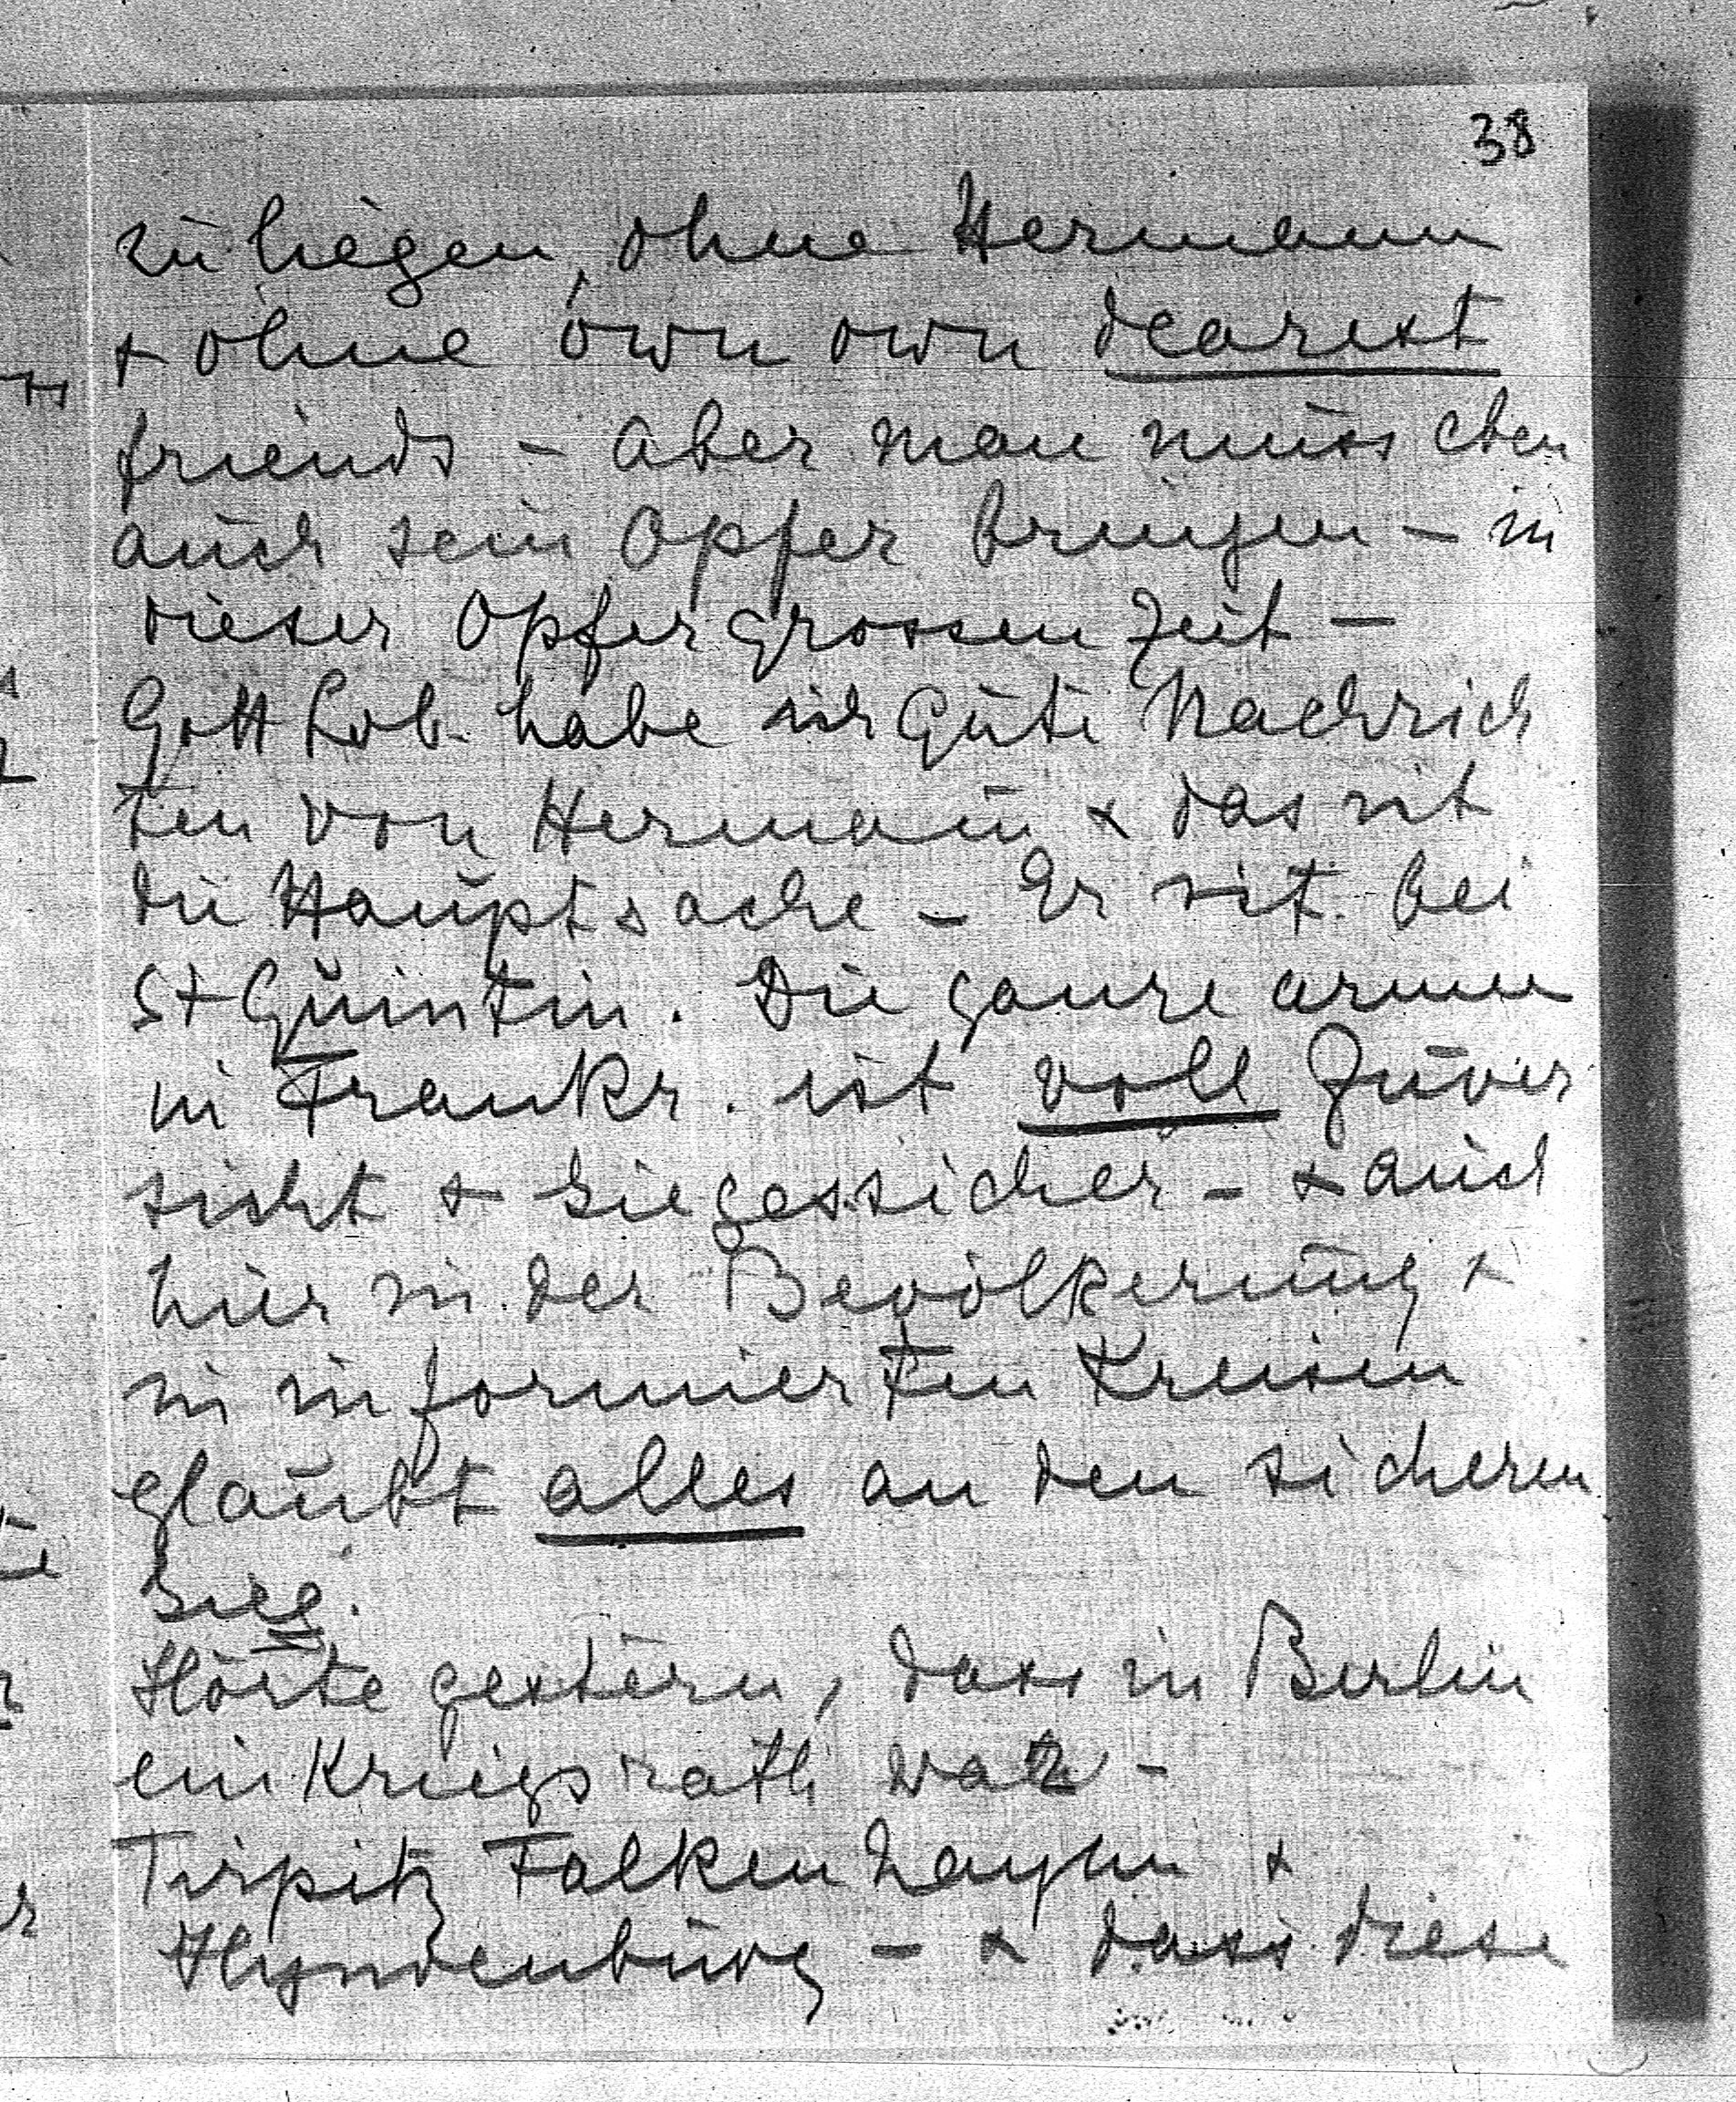 38
zu liegen, ohne Hermann
+ ohne own own dearest
friends - aber man muss eben
auch sein Opfer bringen - in
dieser Opfergrossen Zeit -
Gott Lob habe ich Gute Nachrich
ten von Hermann + das ist
die Hauptsache - Er ist bei
St Quintin. Die ganze armee
in Frankr. ist voll Zuver
sicht + Siegessicher - + auch
hier in der Bevölkerung +
in informierten Kreisen
glaubt alles an den sicheren
Sieg.
Hörte gestern, dass in Berlin
ein Kriegsrath war -
Tirpitz Falkenhayn +
Hyndenburg - + dass diese